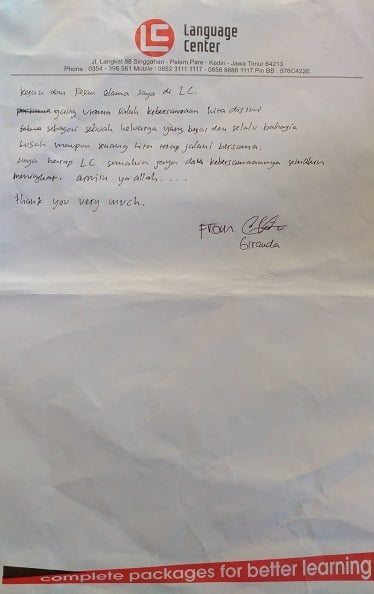 LC
Language
Center
Jl. Langkat 88 Singgahan - Pelem Pare - Kediri - Jawa Timur 64213
Phone : 0354 - 396 561 Mobile : 0852 3111 1117 - 0856 8666 1117 Pin BB : 576C422E
kesan dan Pesan selama saya di LC.
yang utama ialah kebersamaan kita disini
sebagai sebuah keluarga yang besar dan selalu bahagia
susah maupun senang kita tetap jalani bersama.
saya harap LC semakin jaya dan kebersamaannya semakin
meningkat. aamiin ya allah....
thank you very much.
From
Giranda
complete packages for better learning